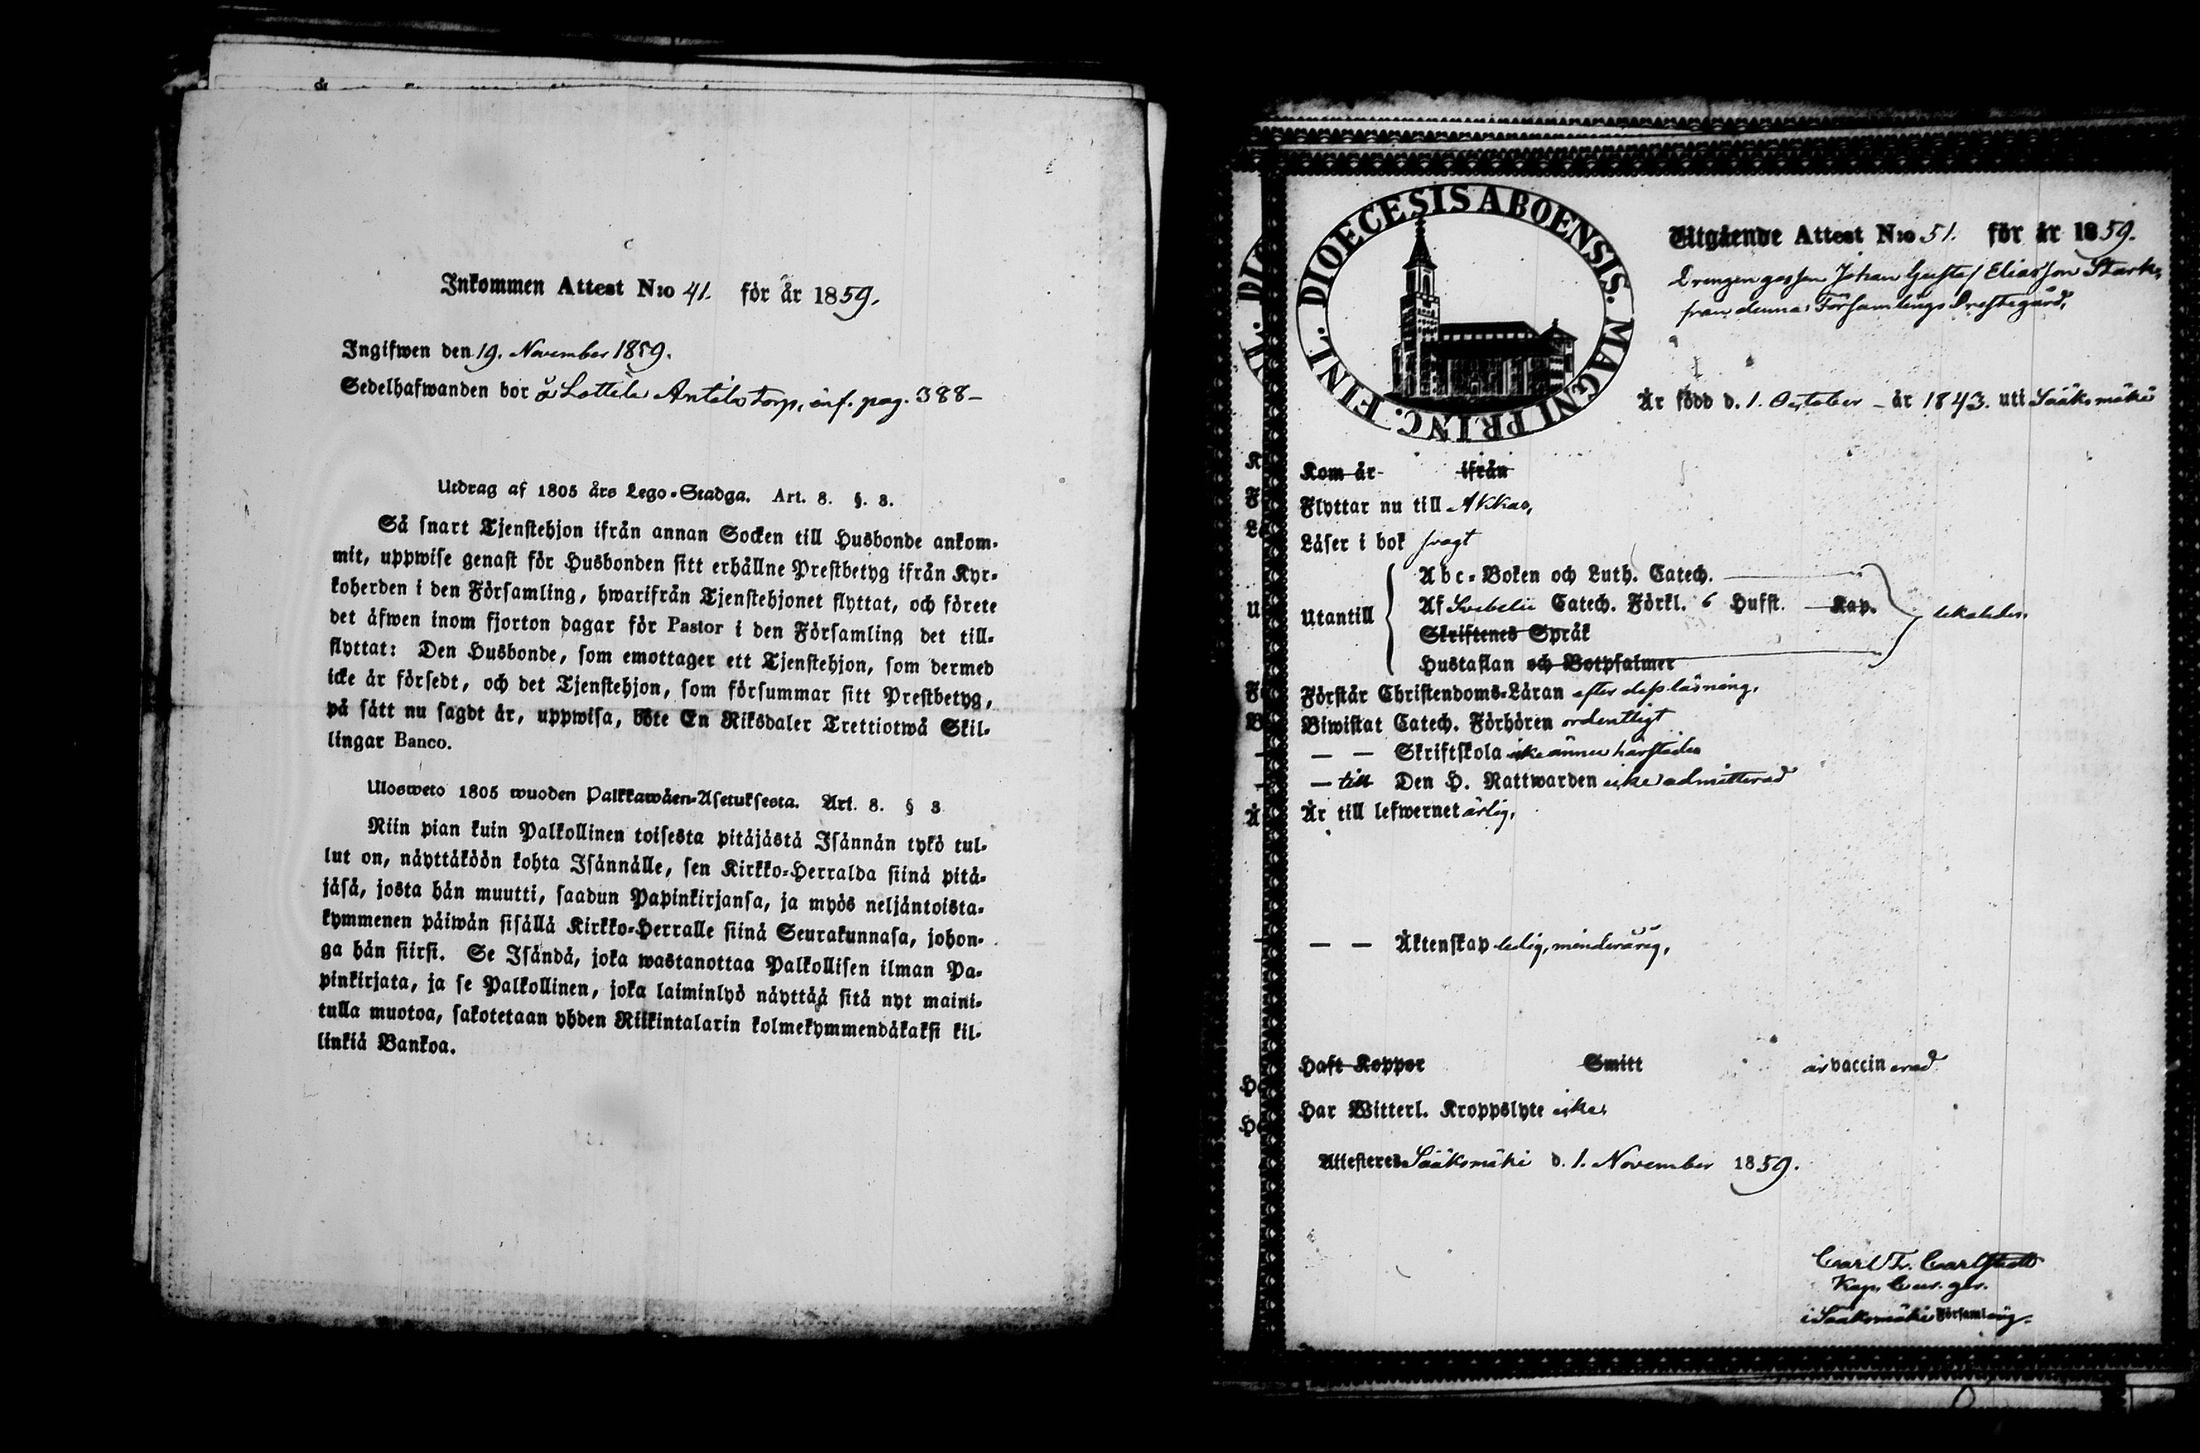 Inkommen Attest N:o 41. för år 1859.
Ingifwen den 19. November 1859.
Sedelhafwanden bor å Lottila Anttila torp, inf. pag. 388 –
Utdrag af 1805 års Lego-Stadga. Art. 8. §. 3.
Så snart Tjenstehjon ifrån annan Socken till Husbonde ankom-
mit, uppwise genast för Husbonden sitt erhållne Prestbetyg ifrån Kyr-
koherden i den Församling, hwarifrån Tjenstehjonet flyttat, och förete
det äfwen inom fjorton dagar för Pastor i den Församling det till-
flyttat: Den Husbonde, som emottager ett Tjenstehjon, som dermed
icke är försedt, och det Tjenstehjon, som försummar sitt Prestbetyg,
på sätt nu sagdt är, uppwisa, böte En Riksdaler Trettiotwå Skil-
lingar Banco.
Ulosweto 1805 wuoden Palkkawäen-Asetuksesta. Art. 8. § 3
Niin pian kuin Palkollinen toisesta pitäjästä Isännän tykö tul-
lut on, näyttäköön kohta Isännälle, sen Kirkko-Herralda siinä pitä-
jäsä, josta hän muutti, saadun Papinkirjansa, ja myös neljäntoista-
kymmenen päiwän sisällä Kirkko-Herralle siinä Seurakunnasa, johon-
ga hän siirsi. Se Isändä, joka wastanottaa Palkollisen ilman Pa-
pinkirjata, ja se Palkollinen, joka laiminlyö näyttää sitä nyt maini-
tulla muotoa, sakotetaan yhden Riikintalarin kolmekymmendäkaksi kil-
linkiä Bankoa.
DIOECESIS ABOENSIS. MAGNI PRINC. FINL.
Utgående Attest N:o 51. för år 1859.
Drengen gossen Johan Gustaf Eliasson Stark,
från denna Församlings Prestegård,
Är född d. 1. October – år 1843. uti Sääksmäki
Kom år ifrån
Flyttar nu till Akkas,
Läser i bok svagt
Utantill
Abc-Boken och Luth. Catech.
Af Svebelii Catech. Förkl. 6 Hufst. Kap.
Skriftenes Språk
Hustaflan och Botpsalmer
Förstår Christendoms-Läran efter dess läsning,
Biwistat Catech. Förhören ordentligt
— — Skriftskola icke ännu härstädes
— till Den H. Nattwarden icke admitterad
Är till lefwernet ärlig,
— — Äktenskap ledig, minderårig,
Haft Koppor Smitt är vaccinerad
Har Witterl. Kroppslyte icke,
Attesteres Sääksmäki d. 1. November 1859.
Carl Fr. Carlstedt
Kap. Cur. ger.
i Sääksmäki Församling.